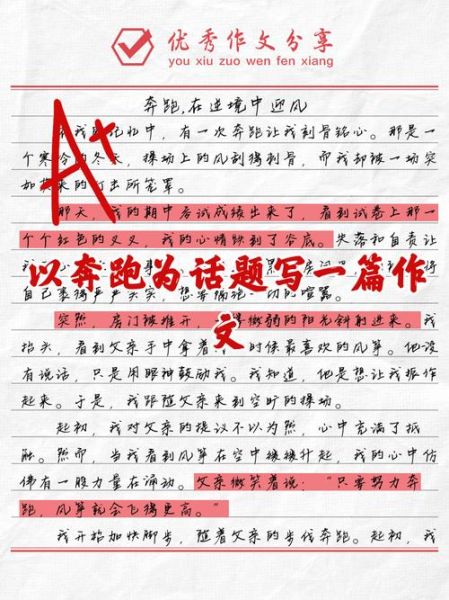 优秀作文分享
you xiu zuo wen fen xiang
奔跑,在逆境中迎风
A+
忆中,有一次奔跑让我刻骨铭心。那是一
个寒冷的冬天,操场上的风刮得刺骨,而我却被一场突
如其来的打击所笼罩。
那天,我的期中考试成绩出来了,看到试卷上那一
个个红色的叉叉,我的心情跌到了谷底。失落和自责让
以奔跑为话题写一篇作
文
自己裹得严严实实,想要隔绝一切的喧嚣。
突然,房门被推开,微弱的阳光斜射进来。我
抬头,看到父亲手中拿着小时候最喜欢的风筝。他没
有说话,只是用眼神鼓励我。我知道,他是想让我振作
起来。于是,我跟随父亲来到空旷的操场。
起初,我对父亲的提议不以为然,心中充满了抵
触。然而,当我看到风筝在空中缓缓升起,我的心中仿
佛有一股力量在涌动。父亲微笑着说:“只要努力奔
跑,风筝就会飞得更高。”
我开始加快脚步,随着父亲的步伐奔跑。起初,我